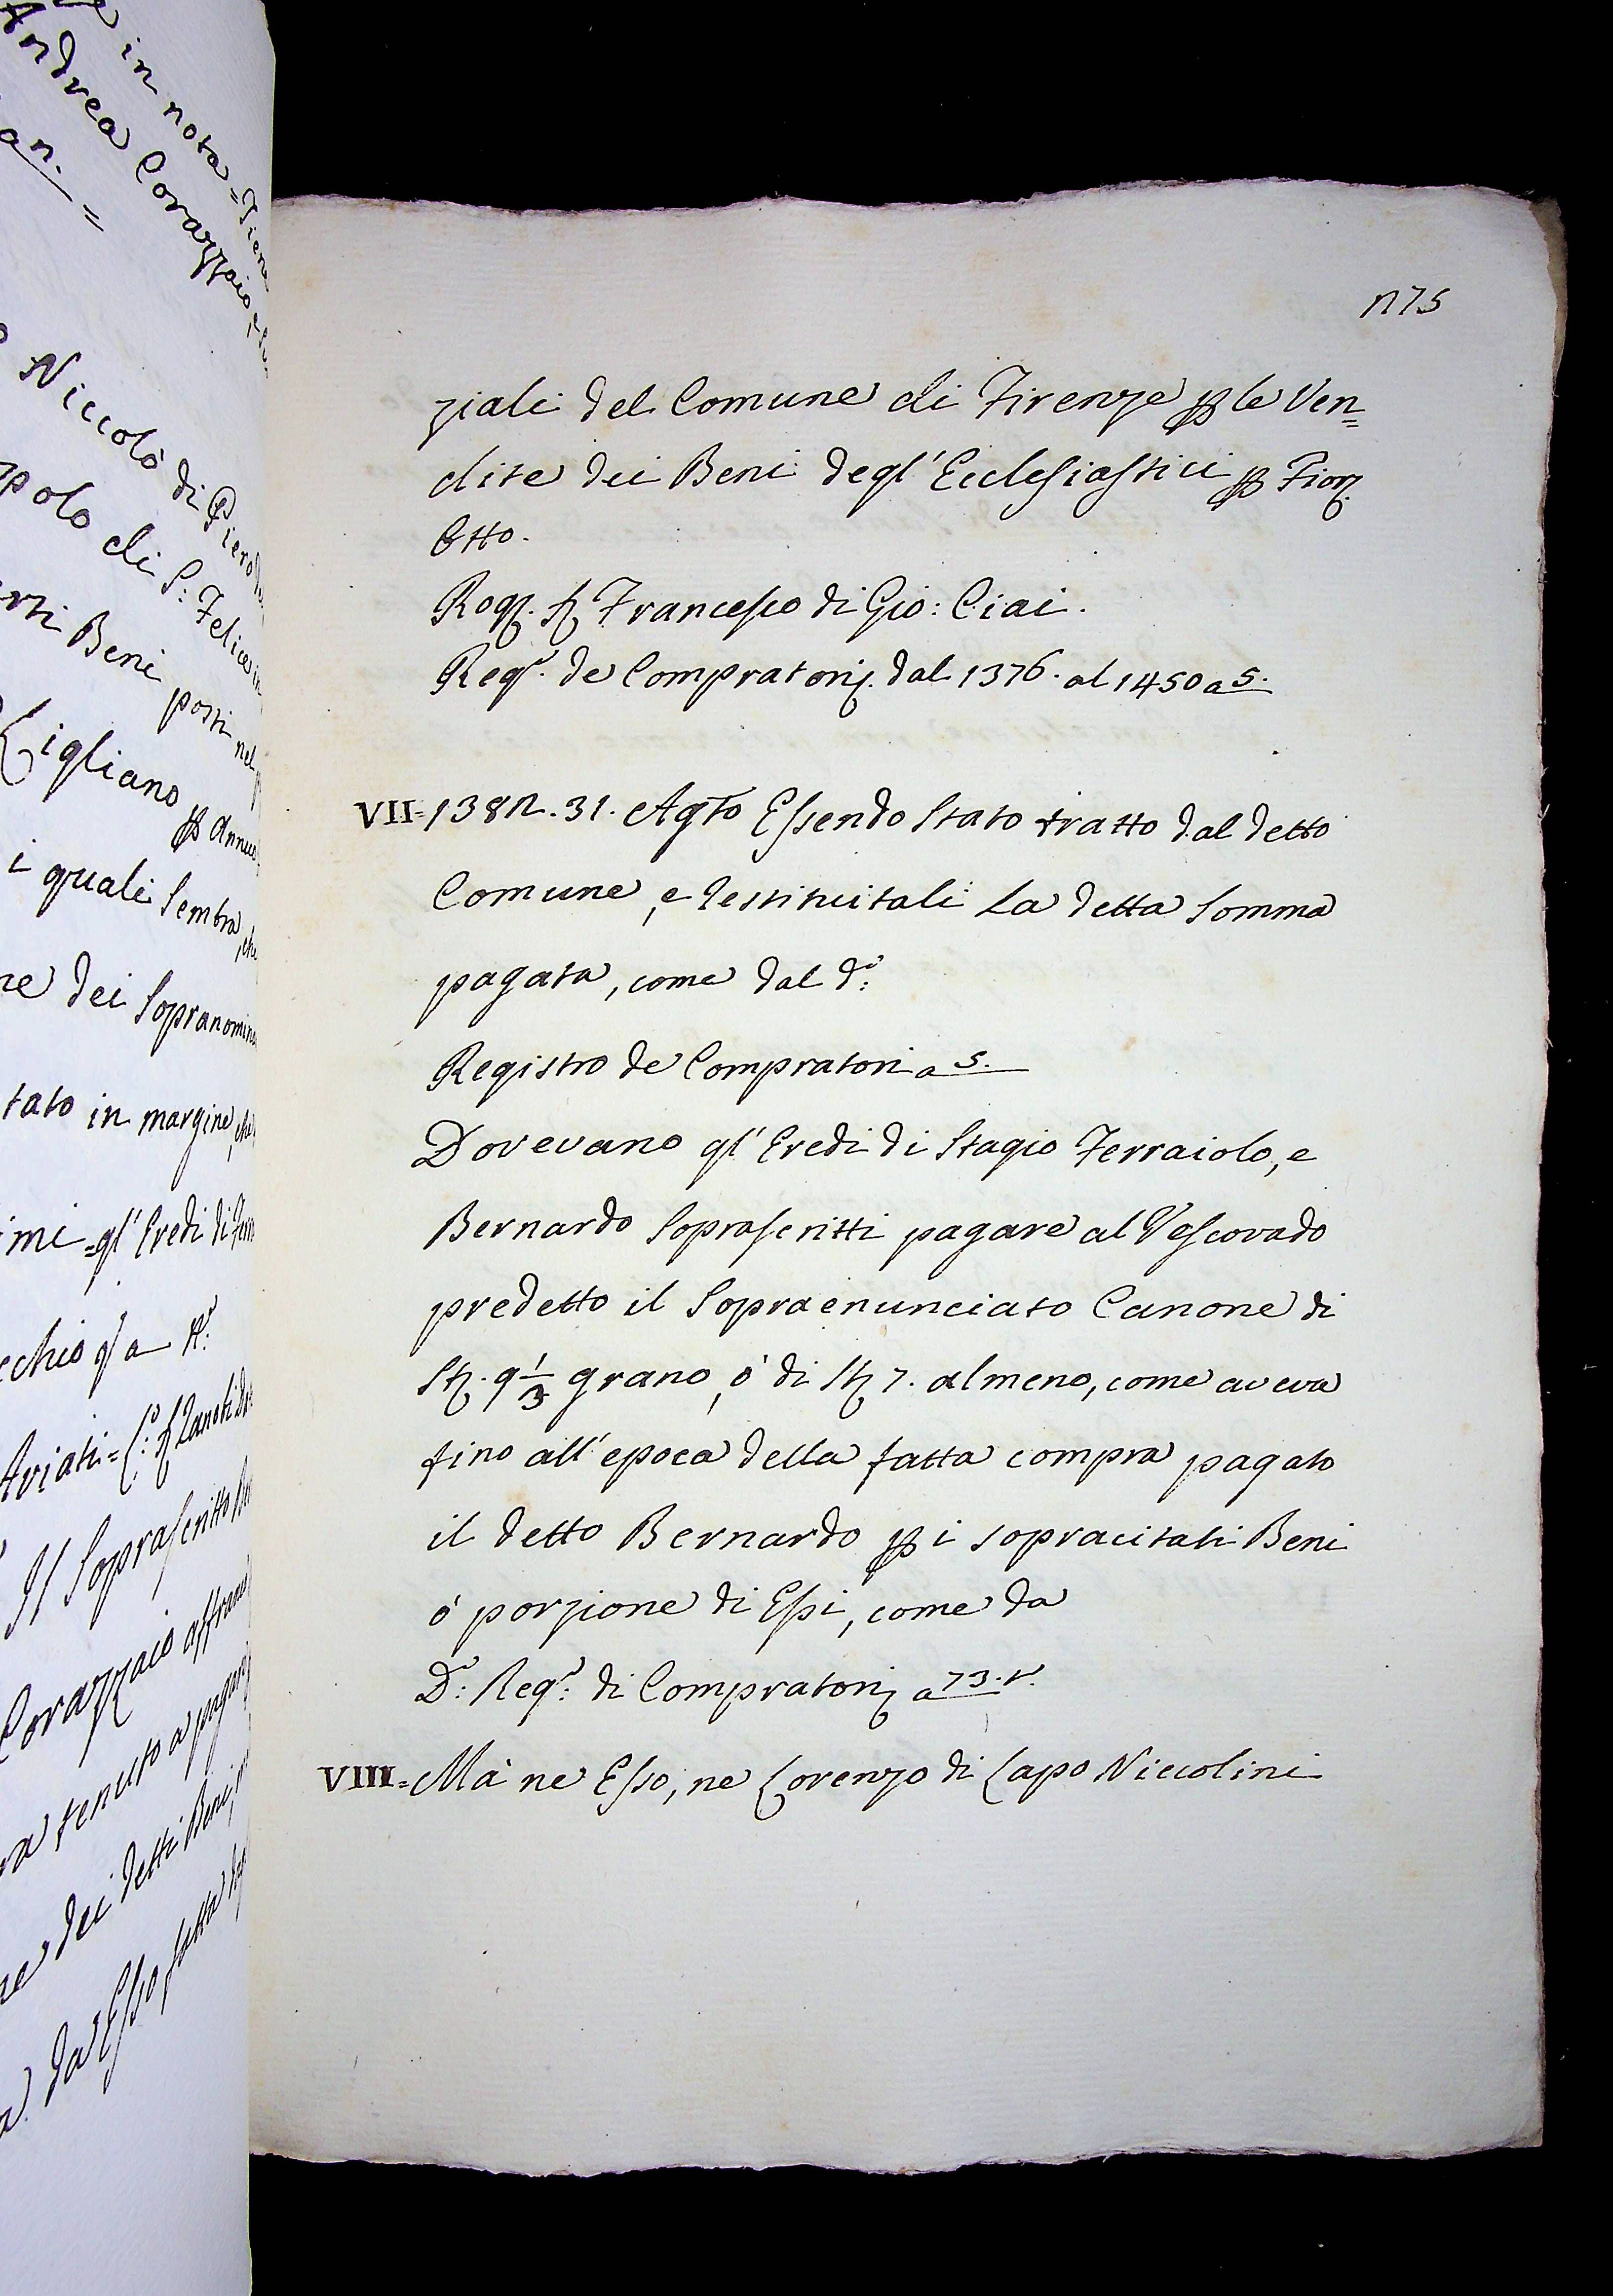 e in nota = Piero
Andrea Corazzaio, e
an. =
Niccolò di Piero
polo di S: Felice in
rti Beni posti nel
Ligliano ꝑ Annuo
i quali Sembra, che
ne dei Sopranomina
tato in margine, che
imi = gl' Eredi di
cchio qº a
Aviati =
Il Soprascritto
Corazzaio affranc
va tenuto a pagare
ne dei detti Beni,
da Esso fatta
275
ziali del Comune di Firenze ꝑ le Ven=
dite dei Beni degl' Ecclesiastici ꝑ Fior.
Otto.
Rog. Sr. Francesco di Gio: Ciai.
Reg.º de Compratori. dal 1376. al 1450 a 5.
VII = 1382. 31. Agto Essendo Stato tratto dal detto
Comune, e restituitali La detta Somma
pagata, come dal d.º:
Registro de Compratori a 5.
Dovevano gl' Eredi di Stagio Ferraiolo, e
Bernardo Soprascritti pagare al Vescovado
predetto il Sopraenunciato Canone di
St. 9 1/3 grano, ò di St 7. almeno, come aveva
fino all' epoca della fatta compra pagato
il detto Bernardo ꝑ i sopracitati Beni
ò porzione di Essi, come da
D.º: Reg.º: di Compratori a 73. t.
VIII = Mà ne Esso, ne Lorenzo di Lapo Niccolini